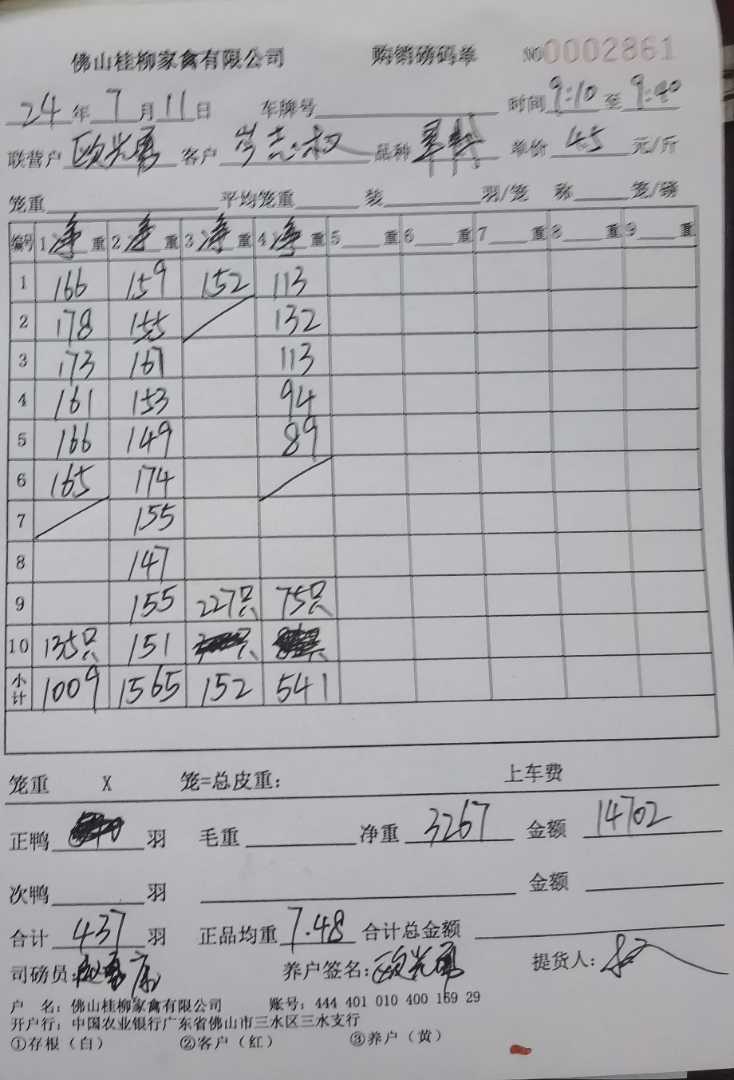 佛山桂柳家禽有限公司 购销磅码单 NO 0002861
24年7月11日 车牌号 时间9:10至9:40
联营户 欧 客户 品种 单价 4.5 元/斤
笼重 平均笼重 装 羽/笼 称 笼/磅
编号 1净重 2净重 3净重 4净重 5重 6重 7重 8重 9重
1 166 159 152 113
2 178 155 132
3 173 167 113
4 161 153 94
5 166 149 89
6 165 174
7 155
8 147
9 155 227只 75只
10 135只 151
小计 1009 1565 152 541
笼重 X 笼=总皮重： 上车费
正鸭 羽 毛重 净重 3267 金额 14702
次鸭 羽 金额
合计 437 羽 正品均重 7.48 合计总金额
司磅员： 养户签名： 欧 提货人：
户 名：佛山桂柳家禽有限公司 账号：444 401 010 400 159 29
开户行：中国农业银行广东省佛山市三水区三水支行
①存根（白） ②客户（红） ③养户（黄）